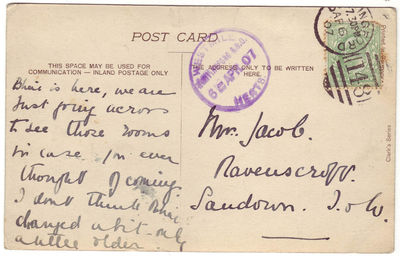 POST CARD
THIS SPACE MAY BE USED FOR
COMMUNICATION — INLAND POSTAGE ONLY
ADDRESS ONLY TO BE WRITTEN
HERE.
6 AP. 07
145
Clark's Series
is here, we are
Just going across
to see those rooms
in case I'm ever
thought of coming.
I don't think
changed a bit only
a little older.
Mr. Jacob.
Ravenscroft.
Sandown. I.o.W.